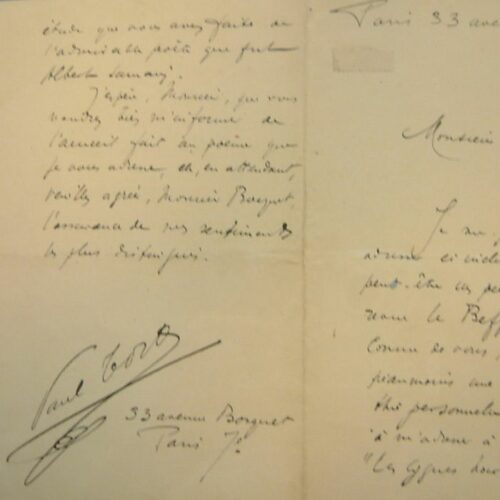 étude que vous avez faite de
l'admirable poète que fut
Albert Samain.
J'espère, Monsieur, que vous
voudrez bien m'informer de
l'accueil fait au poème que
je vous adresse, et, en attendant,
veuillez agréer, Monsieur Bocquet,
l'assurance de mes sentiments
les plus distingués.
Paul
33 avenue Bosquet
Paris 7e
Paris 33 ave
Monsieur
Je me
adresse ci incl
peut-être un pe
revue le Beff
Connu de vous
néanmoins une
personnel
à m'adresser à
"Les Cygnes noi